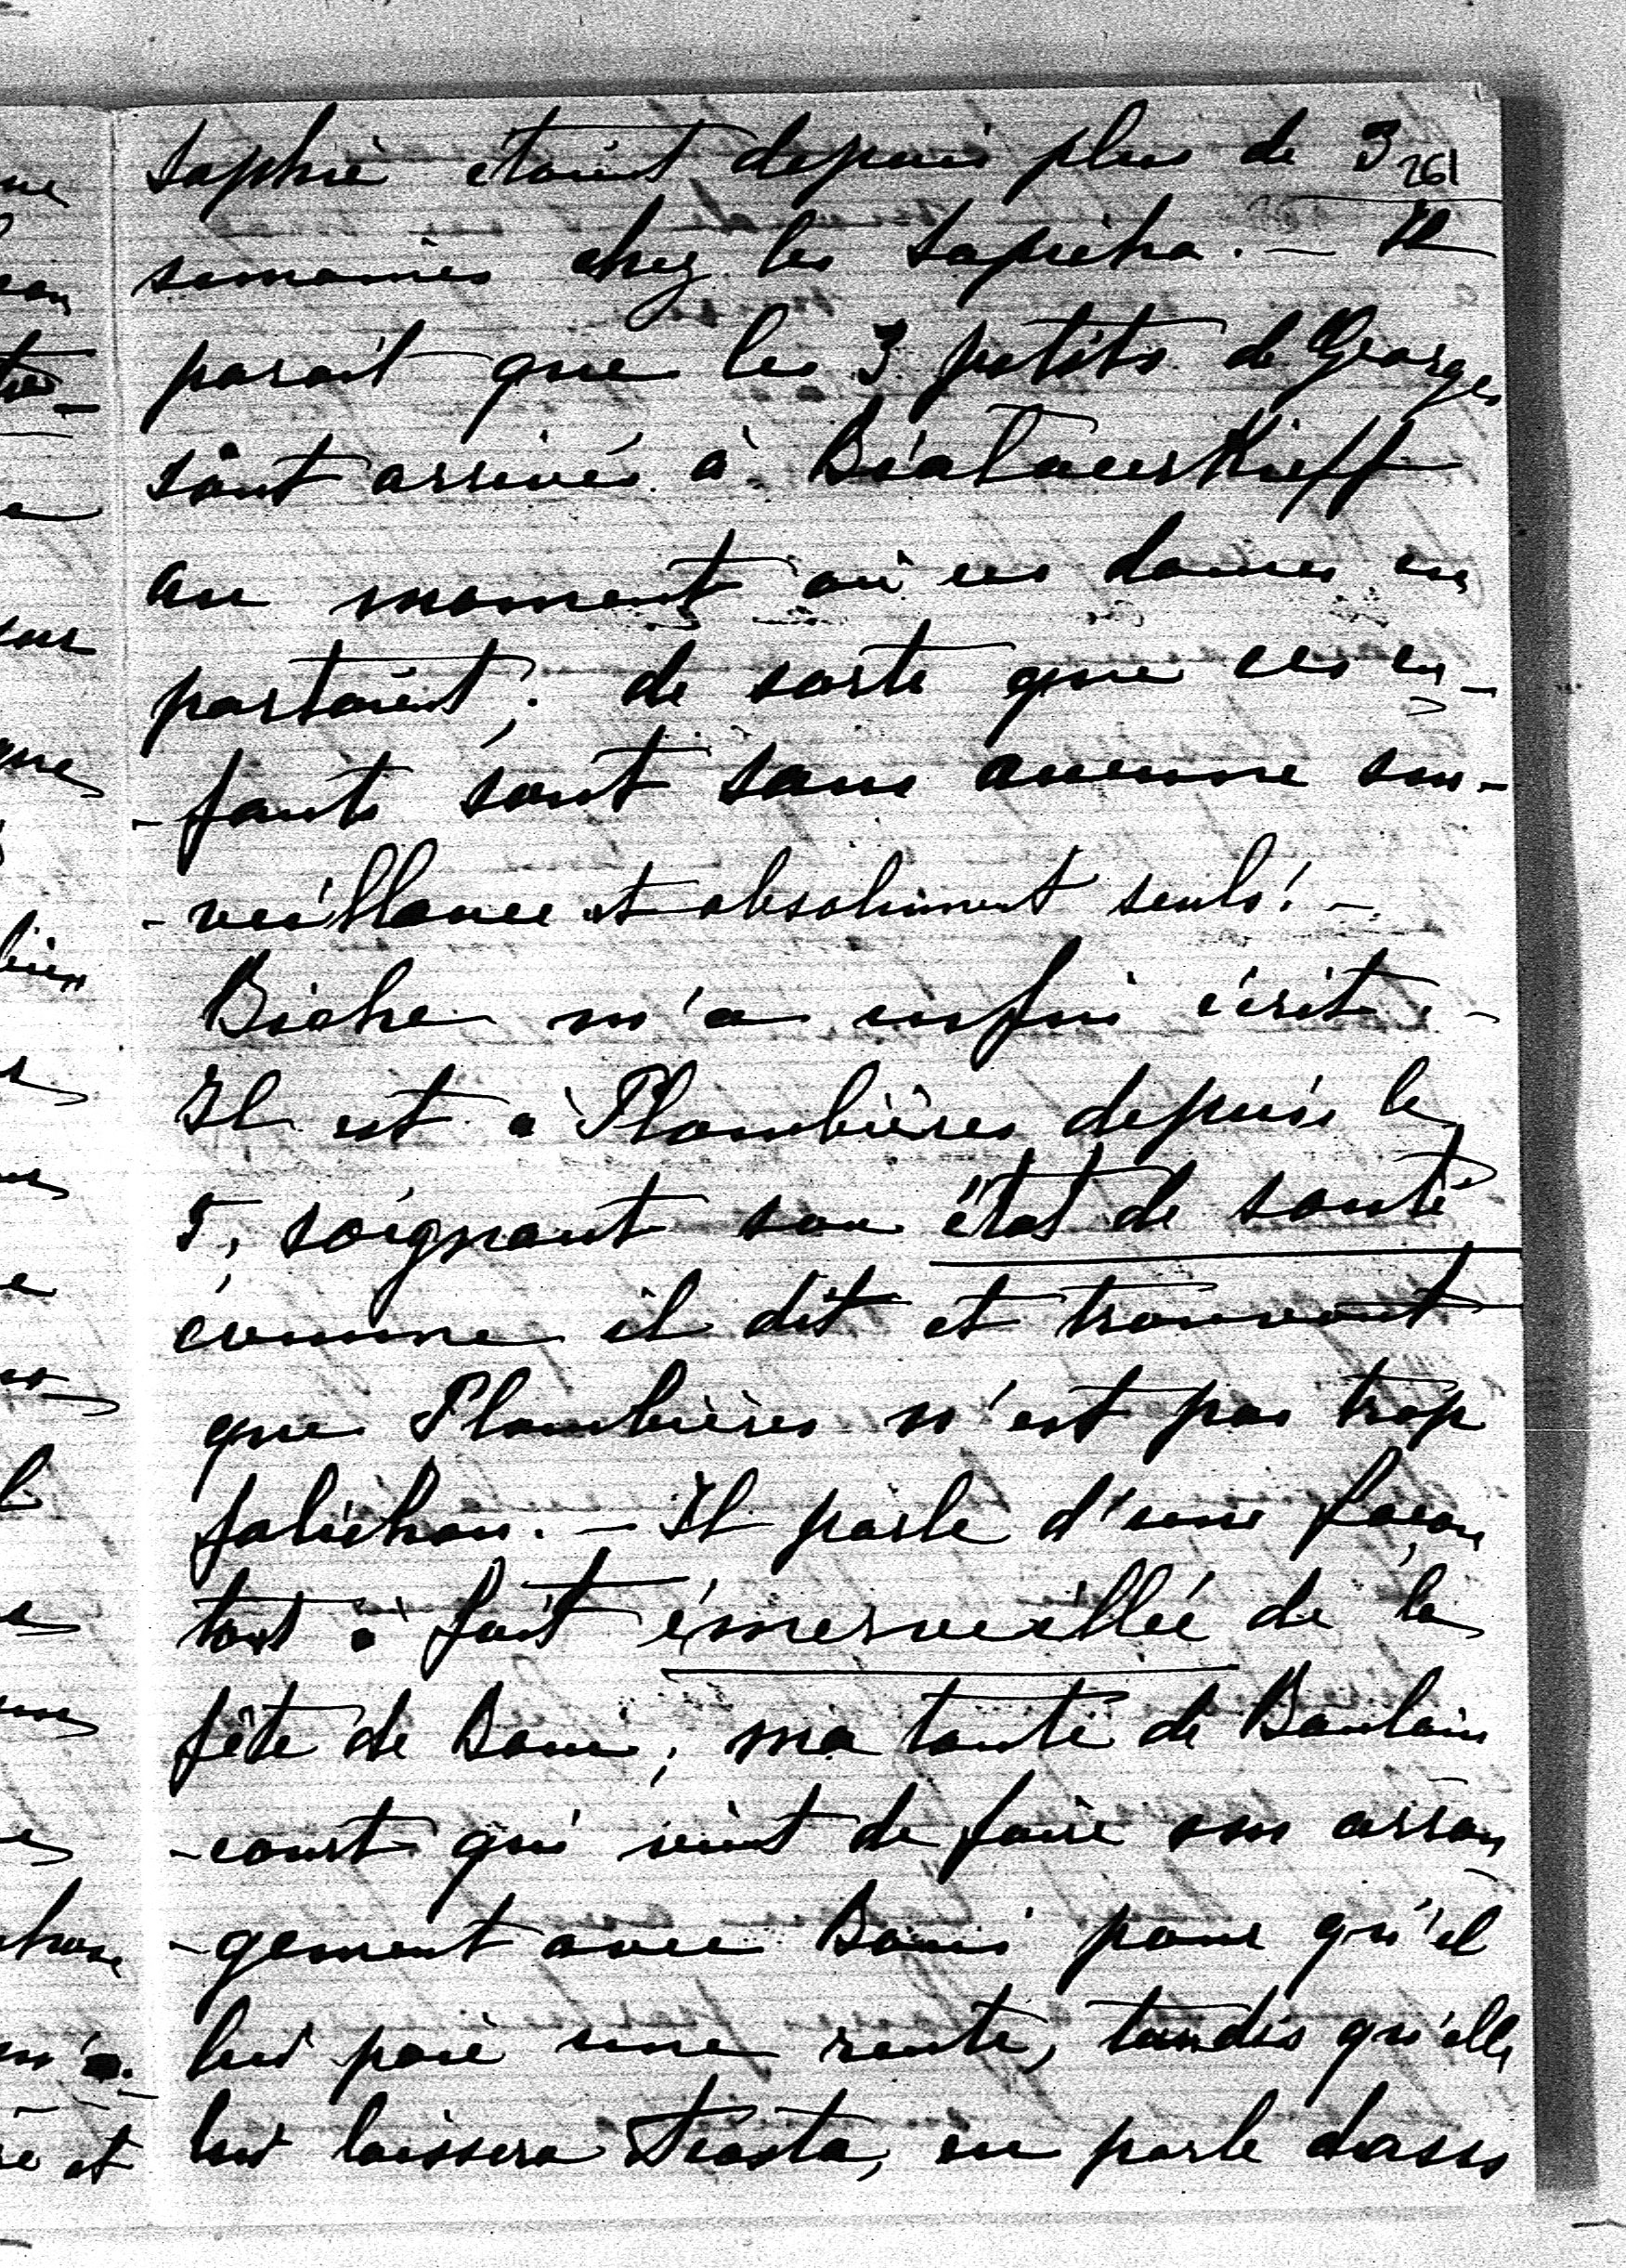 Sophie étaient depuis plus de 3
261
semaines chez les Sapieha. - Il
parait que les 3 petits de Georges
sont arrivés à Bialacerkieff
au moment où ces dames en
partaient; de sorte que ces en-
-fants sont sans aucune sur-
-veillance et absolument seuls! -
Biche m'a enfin écrit -
Il est à Plombières depuis le
5, soignant son "état de santé"
comme il dit et trouvant
que Plombières n'est pas trop
folichon. - Il parle d'une façon
tout à fait émerveillée de la
fête de Boni; ma tante de Baulain
-court qui vient de faire son arran
-gement avec Boni pour qu'il
lui paie une rente, tandis qu'elle
lui laissera en parle d'asses